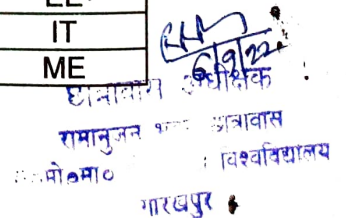 IT
ME
6/9/22
छात्रावास अधीक्षक
रामानुजन छात्रावास
मो०मा० विश्वविद्यालय
गोरखपुर